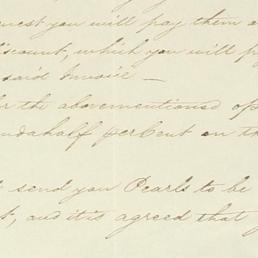 uest you will pay them a
discount, which you will p
said Invoice —
r the abovementioned op
ndahalf percent on th
send you Pearls to be
t, and it is agreed that y